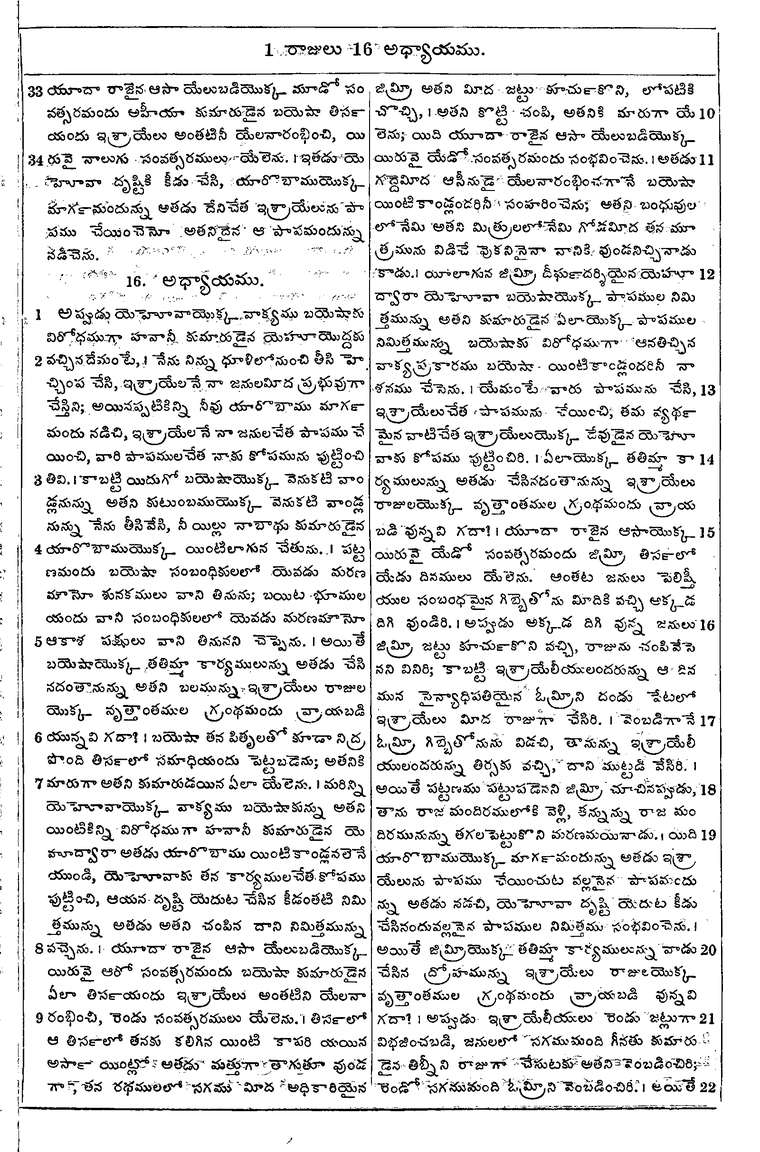 1 రాజులు 16 అధ్యాయము.
33 యూదా రాజైన ఆసా యేలుబడియొక్క మూడో సం
వత్సరమందు అహీయా కుమారుడైన బయెషా తిర్సా
యందు ఇశ్రాయేలు అంతటినీ యేలనారంభించి, యి
34 రువై నాలుగు సంవత్సరములు యేలెను. । ఇతడు యె
హెూవా దృష్టికి కీడు చేసి, యారొబాముయొక్క
మార్గమందున్న అతడు దేనిచేత ఇశ్రాయేలును పా
పము చేయించెనో అతనిదైన ఆ పాపమందున్ను
నడిచెను.
16. అధ్యాయము.
1 అప్పుడు యెహెూవాయొక్క వాక్యము బయెషాకు
విరోధముగా హనానీ కుమారుడైన యెహూయొద్దకు
2 వచ్చినదేమంటే, । నేను నిన్ను ధూళిలోనుంచి తీసి హె
చ్చింప చేసి, ఇశ్రాయేలనే నా జనులమీద ప్రభువుగా
చేస్తిని; అయినప్పటికిన్ని నీవు యారొబాము మార్గ
మందు నడిచి, ఇశ్రాయేలనే నా జనులచేత పాపము చే
యించి, వారి పాపములచేత నాకు కోపమును పుట్టించి
3 తివి. । కాబట్టి యిదుగో బయెషాయొక్క వెనుకటి వాం
డ్లనున్ను అతని కుటుంబముయొక్క వెనుకటి వాండ్ల
నున్ను నేను తీసివేసి, నీ యిల్లు నాబాథు కుమారుడైన
4 యారొబాముయొక్క యింటిలాగున చేతును. । పట్ట
ణమందు బయెషా సంబంధికులలో యెవడు మరణ
మౌనో శునకములు వాని తినును; బయిట భూముల
యందు వాని సంబంధికులలో యెవడు మరణమౌనో
5 ఆకాశ పక్షులు వాని తినునని చెప్పెను. । అయితే
బయెషాయొక్క తతిమ్మా కార్యములున్ను అతడు చేసి
నదంతానున్ను అతని బలమున్ను ఇశ్రాయేలు రాజుల
యొక్క వృత్తాంతముల గ్రంథమందు వ్రాయబడి
6 యున్నవి గదా! । బయెషా తన పితృలతో కూడా నిద్ర
పొంది తిర్సాలో సమాధియందు పెట్టబడెను; అతనికి
7 మారుగా అతని కుమారుడయిన ఏలా యేలెను. । మరిన్ని
యెహెూవాయొక్క వాక్యము బయెషాకున్ను అతని
యింటికిన్ని విరోధముగా హనానీ కుమారుడైన యె
హూద్వారా అతడు యారొబాము యింటి కాండ్లవలెనే
యుండి, యెహెూవాకు తన కార్యములచేత కోపము
పుట్టించి, ఆయన దృష్టి యెదుట చేసిన కీడంతటి నిమి
త్తమున్ను అతడు అతని చంపిన దాని నిమిత్తమున్ను
8 వచ్చెను. । యూదా రాజైన ఆసా యేలుబడియొక్క
యిరువై ఆరో సంవత్సరమందు బయెషా కుమారుడైన
ఏలా తిర్సాయందు ఇశ్రాయేలు అంతటిని యేలనా
9 రంభించి, రెండు సంవత్సరములు యేలెను. । తిర్సాలో
ఆ తిర్సాలో తనకు కలిగిన యింటి కాపరి యయిన
అర్సా యింట్లో అతడు మత్తుగా తాగుతూ వుండ
గా, తన రథములలో సగము మీద అధికారియైన
జిమ్రీ అతని మీద జట్టు కూర్చుకొని, లోపటికి
చొచ్చి, । అతని కొట్టి చంపి, అతనికి మారుగా యే 10
లెను; యిది యూదా రాజైన ఆసా యేలుబడియొక్క
యిరువై యేడో సంవత్సరమందు సంభవించెను. । అతడు 11
గద్దెమీద ఆసీనుడై యేలనారంభించగానే బయెషా
యింటికాండ్లందరినీ సంహరించెను; అతని బంధువుల
లోనేమి అతని మిత్రులలోనేమి గోడమీద తన మూ
త్రమును విడిచే వొకనినైనా వానికి వుండనిచ్చినాడు
కాడు. । యీలాగున జిమ్రీ దీర్ఘదర్శియైన యెహూ 12
ద్వారా యెహెూవా బయెషాయొక్క పాపముల నిమి
త్తమున్ను అతని కుమారుడైన ఏలాయొక్క పాపముల
నిమిత్తమున్ను బయెషాకు విరోధముగా ఆనతిచ్చిన
వాక్యప్రకారము బయెషా యింటికాండ్లందరినీ నా
శనము చేసెను. । యేమంటే వారు పాపమును చేసి, 13
ఇశ్రాయేలుచేత పాపమును చేయించి; తమ వ్యర్థ
మైన వాటిచేత ఇశ్రాయేలుయొక్క దేవుడైన యెహెూ
వాకు కోపము పుట్టించిరి. । ఏలాయొక్క తతిమ్మా కా 14
ర్యములున్ను అతడు చేసినదంతానున్ను ఇశ్రాయేలు
రాజులయొక్క వృత్తాంతముల గ్రంథమందు వ్రాయ
బడి వున్నవి గదా! । యూదా రాజైన ఆసాయొక్క 15
యిరువై యేడో సంవత్సరమందు జిమ్రీ తిర్సాలో
యేడు దినములు యేలెను. అంతట జనులు పెలిష్తీ
యుల సంబంధమైన గిబ్బెతోను మీదికి వచ్చి అక్కడ
దిగి వుండిరి. । అప్పుడు అక్కడ దిగి వున్న జనులు 16
జిమ్రీ జట్టు కూర్చుకొని వచ్చి, రాజును చంపివేసె
నని వినిరి; కాబట్టి ఇశ్రాయేలీయులందరున్ను ఆ దిన
మున సైన్యాధిపతియైన ఓమ్రీని దండు పేటలో
ఇశ్రాయేలు మీద రాజుగా చేసిరి. । వెంబడిగానే 17
ఓమ్రీ గిబ్బెతోనును విడచి, తానున్ను ఇశ్రాయేలీ
యులందరున్ను తిర్సకు వచ్చి, దాని ముట్టడి వేసిరి. ।
అయితే పట్టణము పట్టుపడెనని జిమ్రీ చూచినప్పుడు, 18
తాను రాజ మందిరములోకి వెళ్లి, తన్నున్ను రాజ మం
దిరమునున్ను తగలపెట్టుకొని మరణమయినాడు. । యిది 19
యారొబాముయొక్క మార్గమందున్ను అతడు ఇశ్రా
యేలును పాపము చేయించుట వల్లనైన పాపమందు
న్ను అతడు నడచి, యెహెూవా దృష్టి యెదుట కీడు
చేసినందువల్లనైన పాపముల నిమిత్తము సంభవించెను. ।
అయితే జిమ్రీయొక్క తతిమ్మా కార్యములున్ను వాడు 20
చేసిన ద్రోహమున్ను ఇశ్రాయేలు రాజులయొక్క
వృత్తాంతముల గ్రంథమందు వ్రాయబడి వున్నవి
గదా! । అప్పుడు ఇశ్రాయేలీయులు రెండు జట్లుగా 21
విభజించబడి, జనులలో సగముమంది గీనతు కుమారు
డైన తిబ్నీని రాజుగా చేసుటకు అతని వెంబడించిరి;
రెండో సగముమంది ఓమ్రీని వెంబడించిరి. । అయితే 22